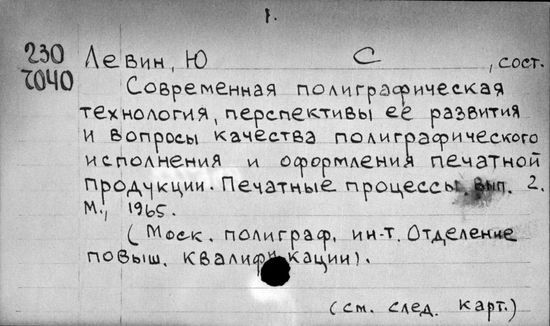 1.
230
2040
Левин, Ю С , сост.
Современная полиграфическая
технология, перспективы ее развития
и вопросы качества полиграфического
исполнения и оформления печатной
продукции. Печатные процессы. вып. 2.
М., 1965.
(Моск. полиграф. ин-т. Отделение
повыш. квалификации).
(см. след. карт.)